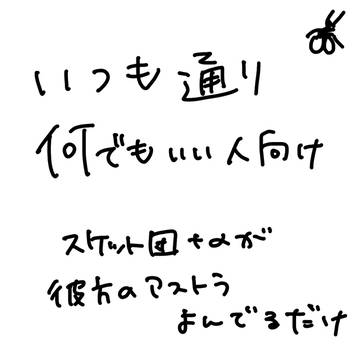 いつも通り
何でもいい人向け
スケット団+αが
彼方のアストラ
よんでるだけ